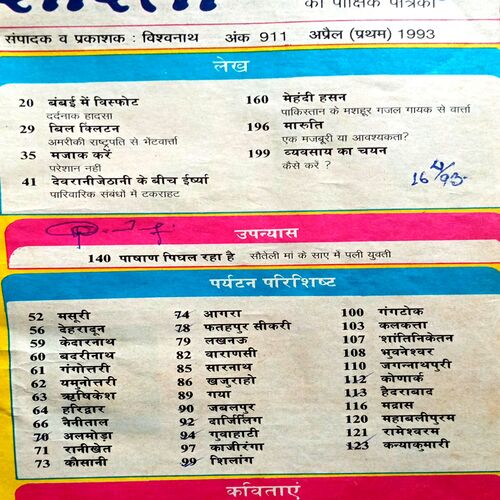 की पाक्षिक पत्रिका
संपादक व प्रकाशक : विश्वनाथ अंक 911 अप्रैल (प्रथम) 1993
लेख
20 बंबई में विस्फोट
दर्दनाक हादसा
29 बिल क्लिंटन
अमरीकी राष्ट्रपति से भेंटवार्ता
35 मजाक करें
परेशान नहीं
41 देवरानीजेठानी के बीच ईर्ष्या
पारिवारिक संबंधों में टकराहट
160 मेहंदी हसन
पाकिस्तान के मशहूर गजल गायक से वार्ता
196 मारुति
एक मजबूरी या आवश्यकता?
199 व्यवसाय का चयन
कैसे करें ?
उपन्यास
140 पाषाण पिघल रहा है सौतेली मां के साए में पली युवती
पर्यटन परिशिष्ट
52 मसूरी
56 देहरादून
59 केदारनाथ
60 बदरीनाथ
61 गंगोत्तरी
62 यमुनोत्तरी
63 ऋषिकेश
64 हरिद्वार
66 नैनीताल
70 अलमोड़ा
71 रानीखेत
73 कौसानी
74 आगरा
78 फतहपुर सीकरी
79 लखनऊ
82 वाराणसी
85 सारनाथ
86 खजुराहो
89 गया
90 जबलपुर
92 दार्जिलिंग
94 गुवाहाटी
97 काजीरंगा
99 शिलांग
100 गंगटोक
103 कलकत्ता
107 शांतिनिकेतन
108 भुवनेश्वर
110 जगन्नाथपुरी
112 कोणार्क
113 हैदराबाद
116 मद्रास
120 महाबलीपुरम
121 रामेश्वरम
123 कन्याकुमारी
कविताएं